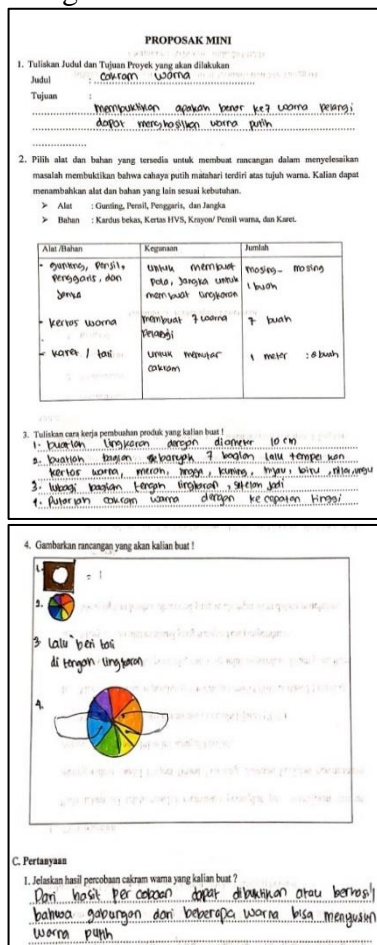 PROPOSAK MINI
1. Tuliskan Judul dan Tujuan Proyek yang akan dilakukan
Judul : cakram warna
Tujuan :
membuktikan apakah benar ke7 warna pelangi
dapat menghasilkan warna putih
2. Pilih alat dan bahan yang tersedia untuk membuat rancangan dalam menyelesaikan
masalah membuktikan bahwa cahaya putih matahari terdiri atas tujuh warna. Kalian dapat
menambahkan alat dan bahan yang lain sesuai kebutuhan.
➢ Alat : Gunting, Pensil, Penggaris, dan Jangka
➢ Bahan : Kardus bekas, Kertas HVS, Krayon/ Pensil warna, dan Karet.
Alat /Bahan Kegunaan Jumlah
- gunting, pensil, penggaris, dan jangka
untuk membuat pola, jangka untuk membuat lingkaran
masing - masing 1 buah
- kertas warna
membuat 7 warna pelangi
7 buah
- karet / tali
untuk memutar cakram
1 meter
3. Tuliskan cara kerja pembuatan produk yang kalian buat !
1. buatlah lingkaran dengan diameter 10 cm
2. buatlah bagian sebanyak 7 bagian lalu tempel kan
kertas warna, merah, jingga, kuning, hijau, biru, nila, ungu
3. lubagi bagian tengah lingkaran, setelah jadi
4. Putarlah cakram warna dengan kecepatan tinggi
4. Gambarkan rancangan yang akan kalian buat !
1.
2.
3. Lalu beri tali
di tengah lingkaran
4.
C. Pertanyaan
1. Jelaskan hasil percobaan cakram warna yang kalian buat ?
Dari hasil percobaan dapat dibuktikan atau berhasil
bahwa gabungan dari beberapa warna bisa menyusun
warna putih